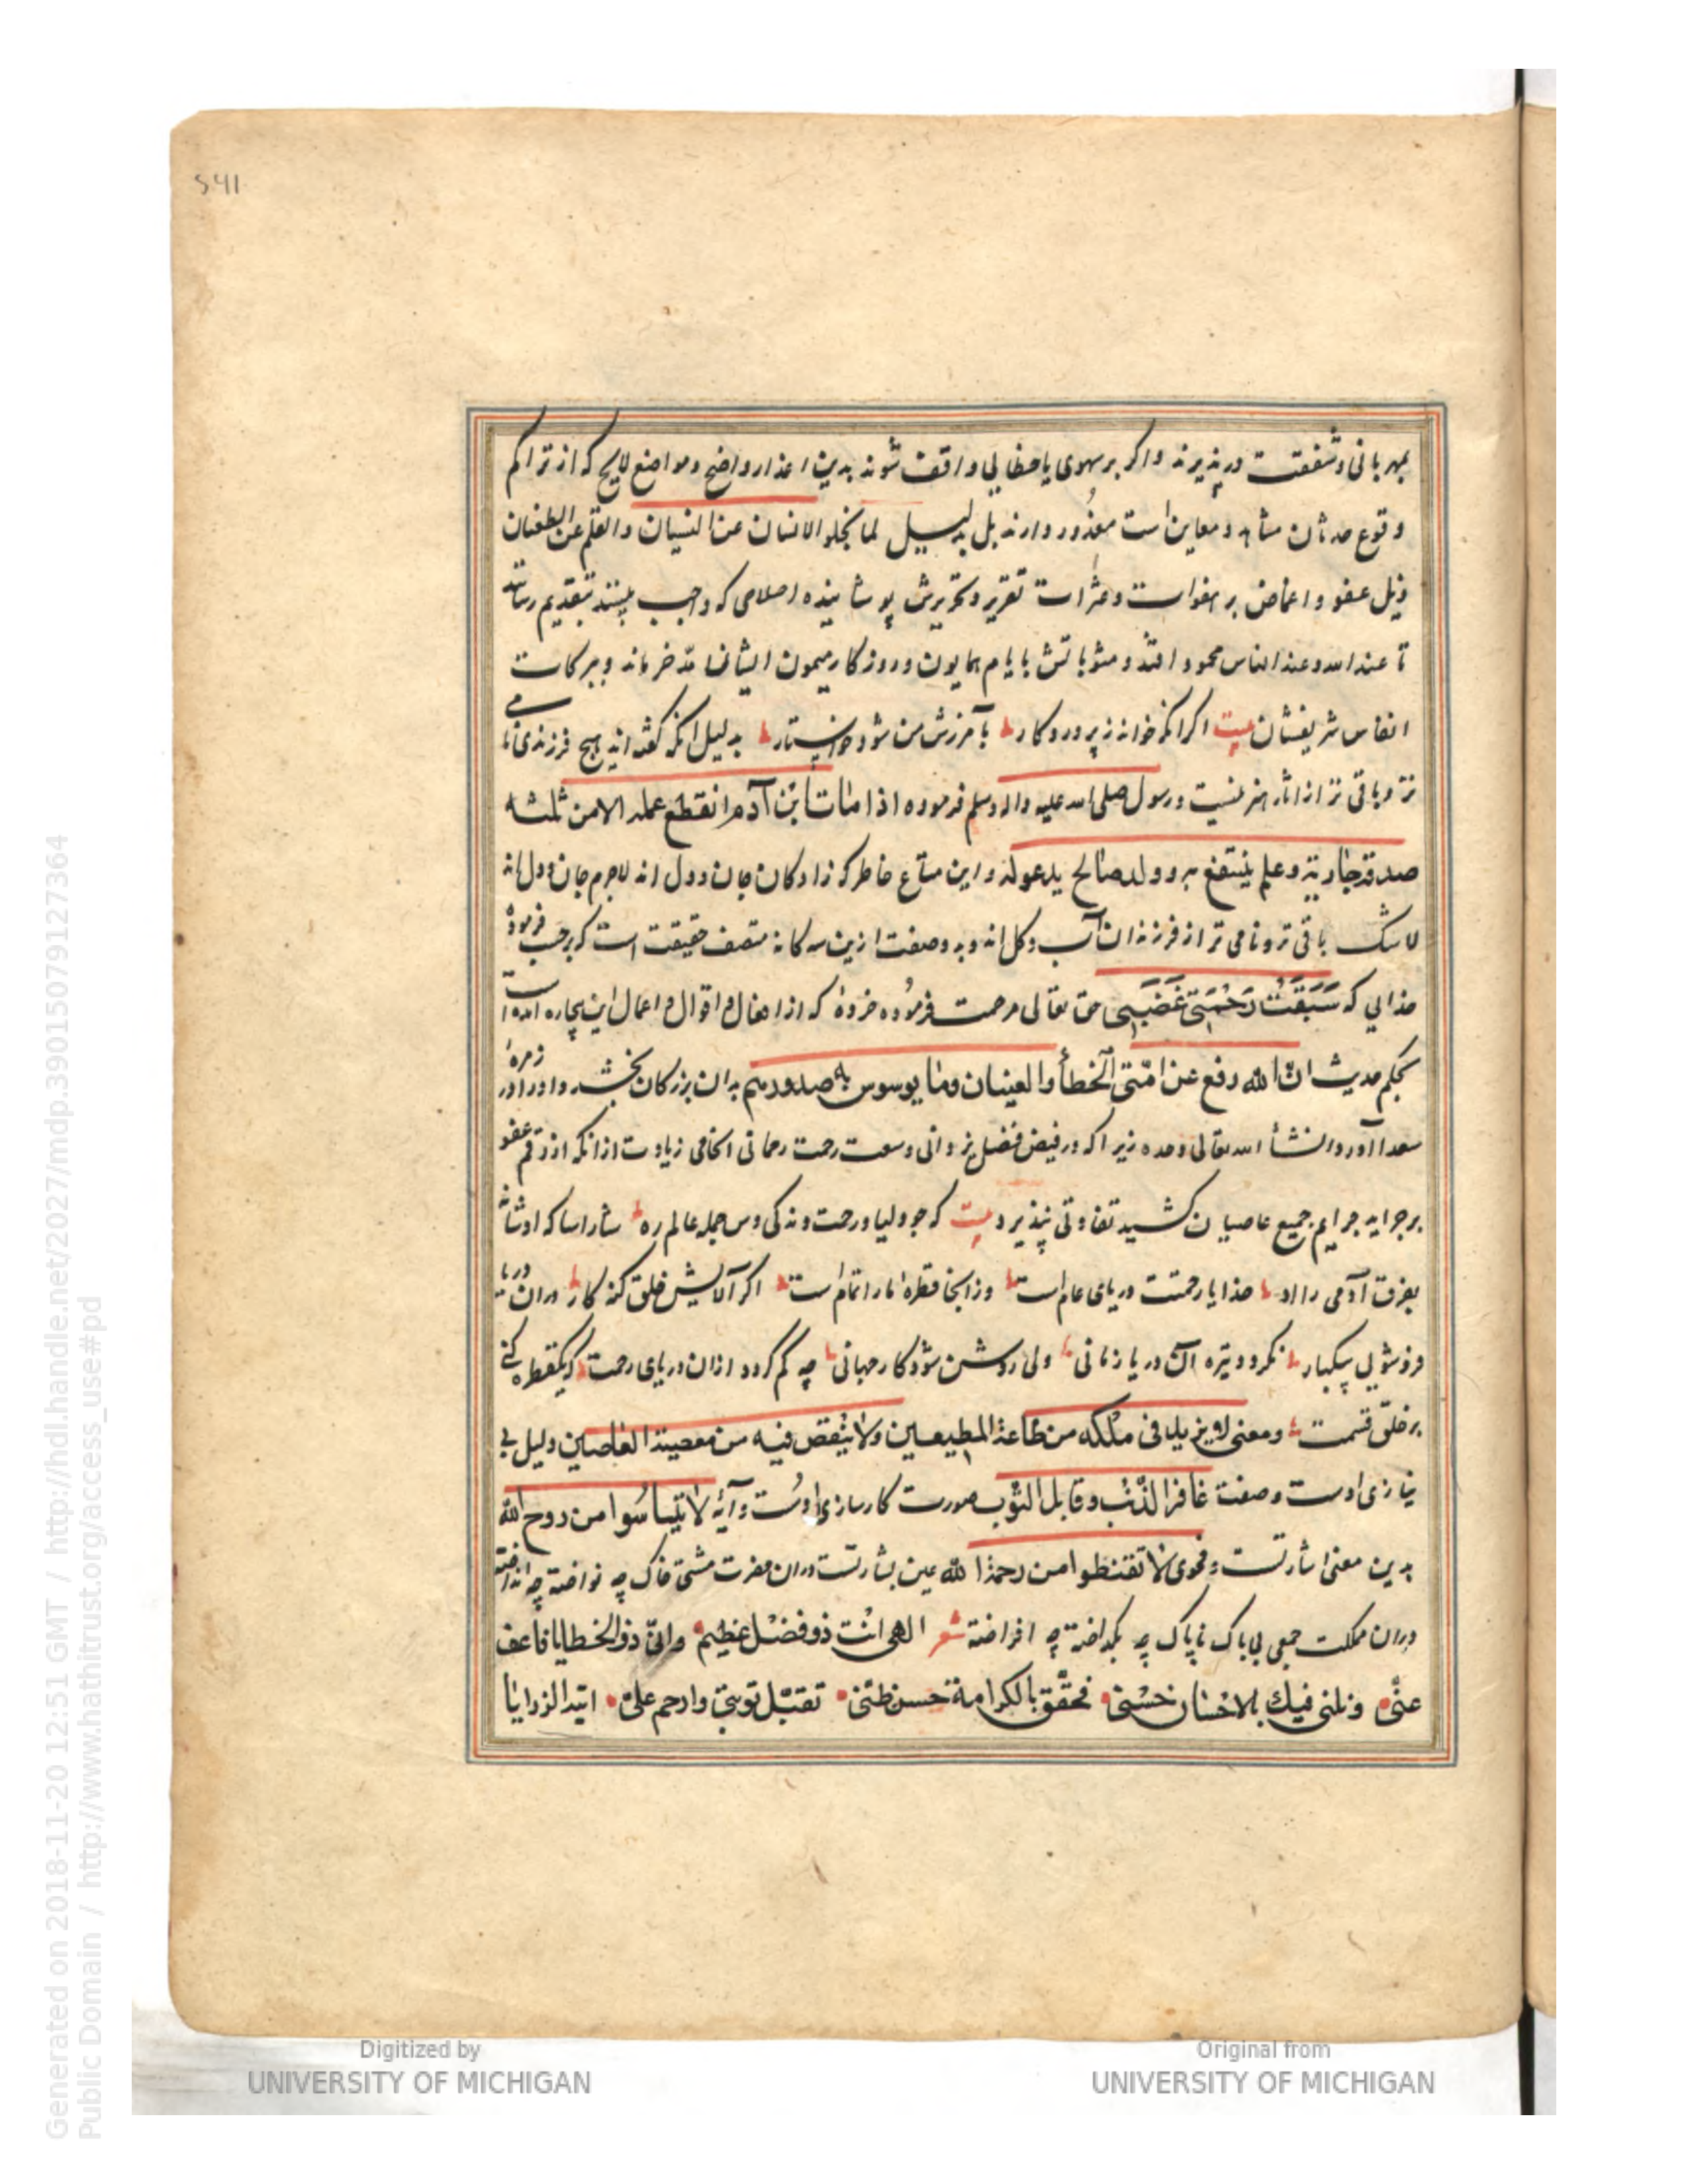 541
بمهربانی و شفقت در پذیرند و اکر بر سهوی یا خطایی واقف شوند بدین اعذار واضح و مواضع لایح که از تراکم
وقوع حدثان مشاهد و معاین است معذور دارند بل بدلیل لما یخلو الانسان عن النسیان والقلم عن الطغیان
ذیل عفو و اغماض بر هفوات و عثرات تقریر و تحریرش پوشانیده اصلاحی که واجب بینند بتقدیم رسانند
تا عند الله و عند الناس محمود افتد و مثوباتش بایام همایون و روزکار میمون ایشان مدخر ماند و ببرکات
انفاس شریفشان بیت اکر انکه خواند ز پروردکار بآمرزش من شود خواستار بدلیل انکه کفته اند هیچ فرزندی نامی
تر و باقی تر از اثار هنر نیست و رسول صلی الله علیه واله وسلم فرموده اذا مات ابن آدم انقطع عمله الا من ثلثه
صدقة جاریة و علم ینتفع به و ولد صالح یدعو له و این متاع خاطر که زادکان جان و دل اند لاجرم جان و دل اند
لاشک باقی تر و نامی تر از فرزندان آب و کل اند و به وصفت ازین سه کانه متصف حقیقت است که برحسب فرمودهٔ
خدایی که سَبَقَتْ رَحْمَتی غَضَبی حق تعالی مرحمت فرموده خردهٔ که از افعال و اقوال و اعمال این بیچاره امده است
بحکم حدیث انّ الله رفع عن امّتی الخطأ والنسیان وما یوسوس به صدورهم بدان بزرکان بخشد و او را در زمرهٔ
سعدا آورد انشأ الله تعالی وحده زیرا که در فیض فضل یزدانی وسعت رحمت رحمانی انجا می زیادت از انکه از رقم عفو
بر جراید جرایم جمیع عاصیان کشید تفاوتی نپذیرد بیت که جو دلیا و رحمت و ندکی وس جمله عالم ره شاراسا که اوشان
بغرق آدمی را اد خدایا رحمتت دریای عام است وز انجا قطرهٔ مارا تمام است اکر آلایش خلق کنه کار در ان دریا
فرو شویی بیکبار نکردد تیره آن دریا زمانی ولی روشن شود کار جهانی چه کم کردد ازان دریای رحمت که یکقطره کنی
بر خلق قسمت و معنی لا یزید فی ملکه من طاعة المطیعین ولا ینقص فیه من معصیة العاصین دلیل بی
نیازی اوست و صفت غافر الذنب و قابل التوب صورت کارسازی اوست و آیهٔ لا تیأسوا من روح الله
بدین معنی اشارتست و فحوی لا تقنطوا من رحمة الله عین بشارتست دران حضرت مشتی خاک چه نواخته چه انداخته
و دران مملکت جمعی بی باک ناپاک چه بکداخته چه افراخته شعر الهی انت ذو فضل عظیم وانی ذو الخطایا فاعف
عنی وظنی فیک بالاحسان حسنی فحقق بالکرامة حسن ظنی تقبل توبتی وارحم علی
Digitized by
UNIVERSITY OF MICHIGAN
Original from
UNIVERSITY OF MICHIGAN
Generated on 2018-11-20 12:51 GMT / http://hdl.handle.net/2027/mdp.39015079127364
Public Domain / http://www.hathitrust.org/access_use#pd